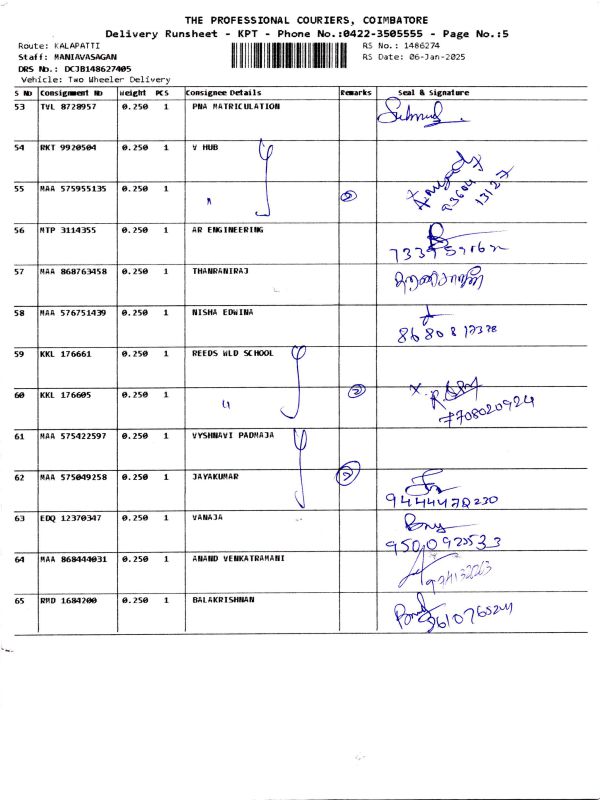 THE PROFESSIONAL COURIERS, COIMBATORE
Delivery Runsheet - KPT - Phone No.:0422-3505555 - Page No.:5
Route: KALAPATTI RS No.: 1486274
Staff: MANIAVASAGAN RS Date: 06-Jan-2025
DRS No.: DCJB148627405
Vehicle: Two Wheeler Delivery
S No Consignment No Weight PCS Consignee Details Remarks Seal & Signature
53 TVL 8728957 0.250 1 PNA MATRICULATION
54 RKT 9920504 0.250 1 V HUB
55 MAA 575955135 0.250 1 " 2
93604
13127
56 MTP 3114355 0.250 1 AR ENGINEERING
57 MAA 868763458 0.250 1 THANRANIRAJ
58 MAA 576751439 0.250 1 NISHA EDWINA
59 KKL 176661 0.250 1 REEDS WLD SCHOOL
60 KKL 176605 0.250 1 " 2
7708020924
61 MAA 575422597 0.250 1 VYSHNAVI PADMAJA
62 MAA 575049258 0.250 1 JAYAKUMAR 2
9444478230
63 EDQ 12370347 0.250 1 VANAJA
9500923533
64 MAA 868444031 0.250 1 ANAND VENKATRAMANI
65 RMD 1684200 0.250 1 BALAKRISHNAN